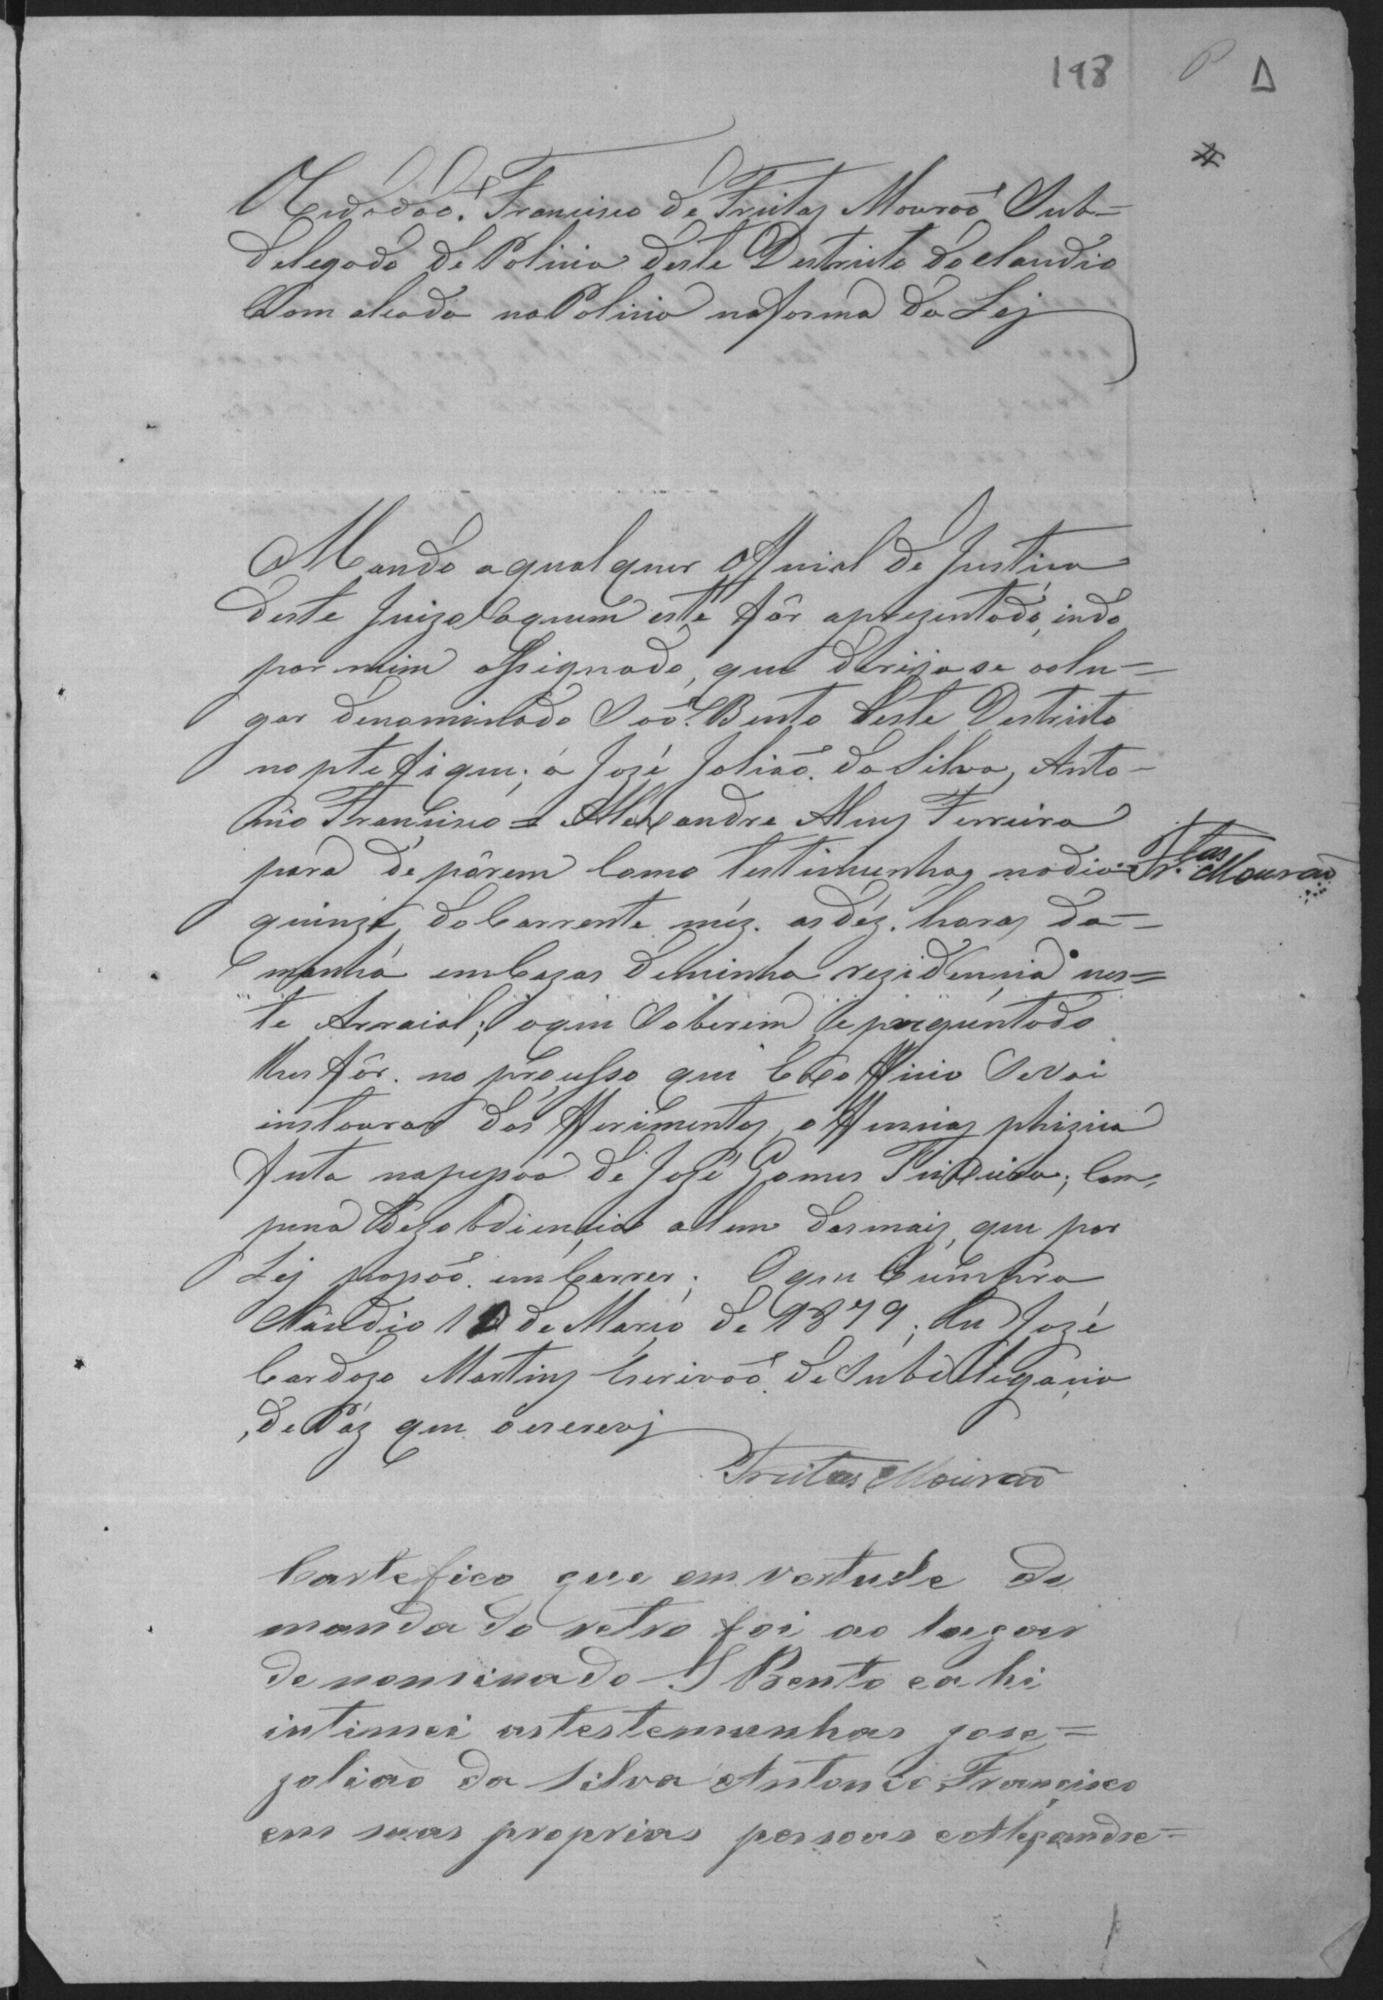 198
O Cidadão Francisco de Freitas Mourão Sub=
delegado de Policia deste Destricto do Claudio
Com alsada na Policia na forma da Lej
Mando a qual quer Official de Justica
deste Juizo aquem este fôr aprezentado, indo
por mim assignado, que derija se ao lu=
gar denominado Saõ Bento deste Destricto
no ptefique; a José Joliaõ da Silva, Anto=
nio Francisco = e Alexandre Alves Ferreira
para deporem Como testimunhas no dia
Fr.tas Mourão
quinze do Corrente mêz. as déz. horas da=
manhã em Cazas de minha rezidencia nes=
te Arraial; o que Soberem e preguntado
lhes fôr. no proçesso que Exofficio Se vai
instaurar dos fferimentos, offencas phizica
feita na pesoa de José Gomes Teixeira; Com,
pena Dezobdiençia alem das mais, que por
Lej em Correr; O que Cumpra
Claudio 10 de Março de 1879; Eu José
Cardozo Martins Escrivaõ de Subdelegaçia
,de Páz que o escrevj
Freitas Mourão
Cartefico que em vertude do
manda do retro foi ao lugar
de nominado S Bento e a hi
intimei as testemunhas jose=
joliaõ da Silva Antonio Francisco
em suas proprias pessoas e Alexandre=